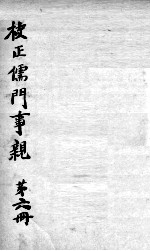 校正儒門事親 第六冊